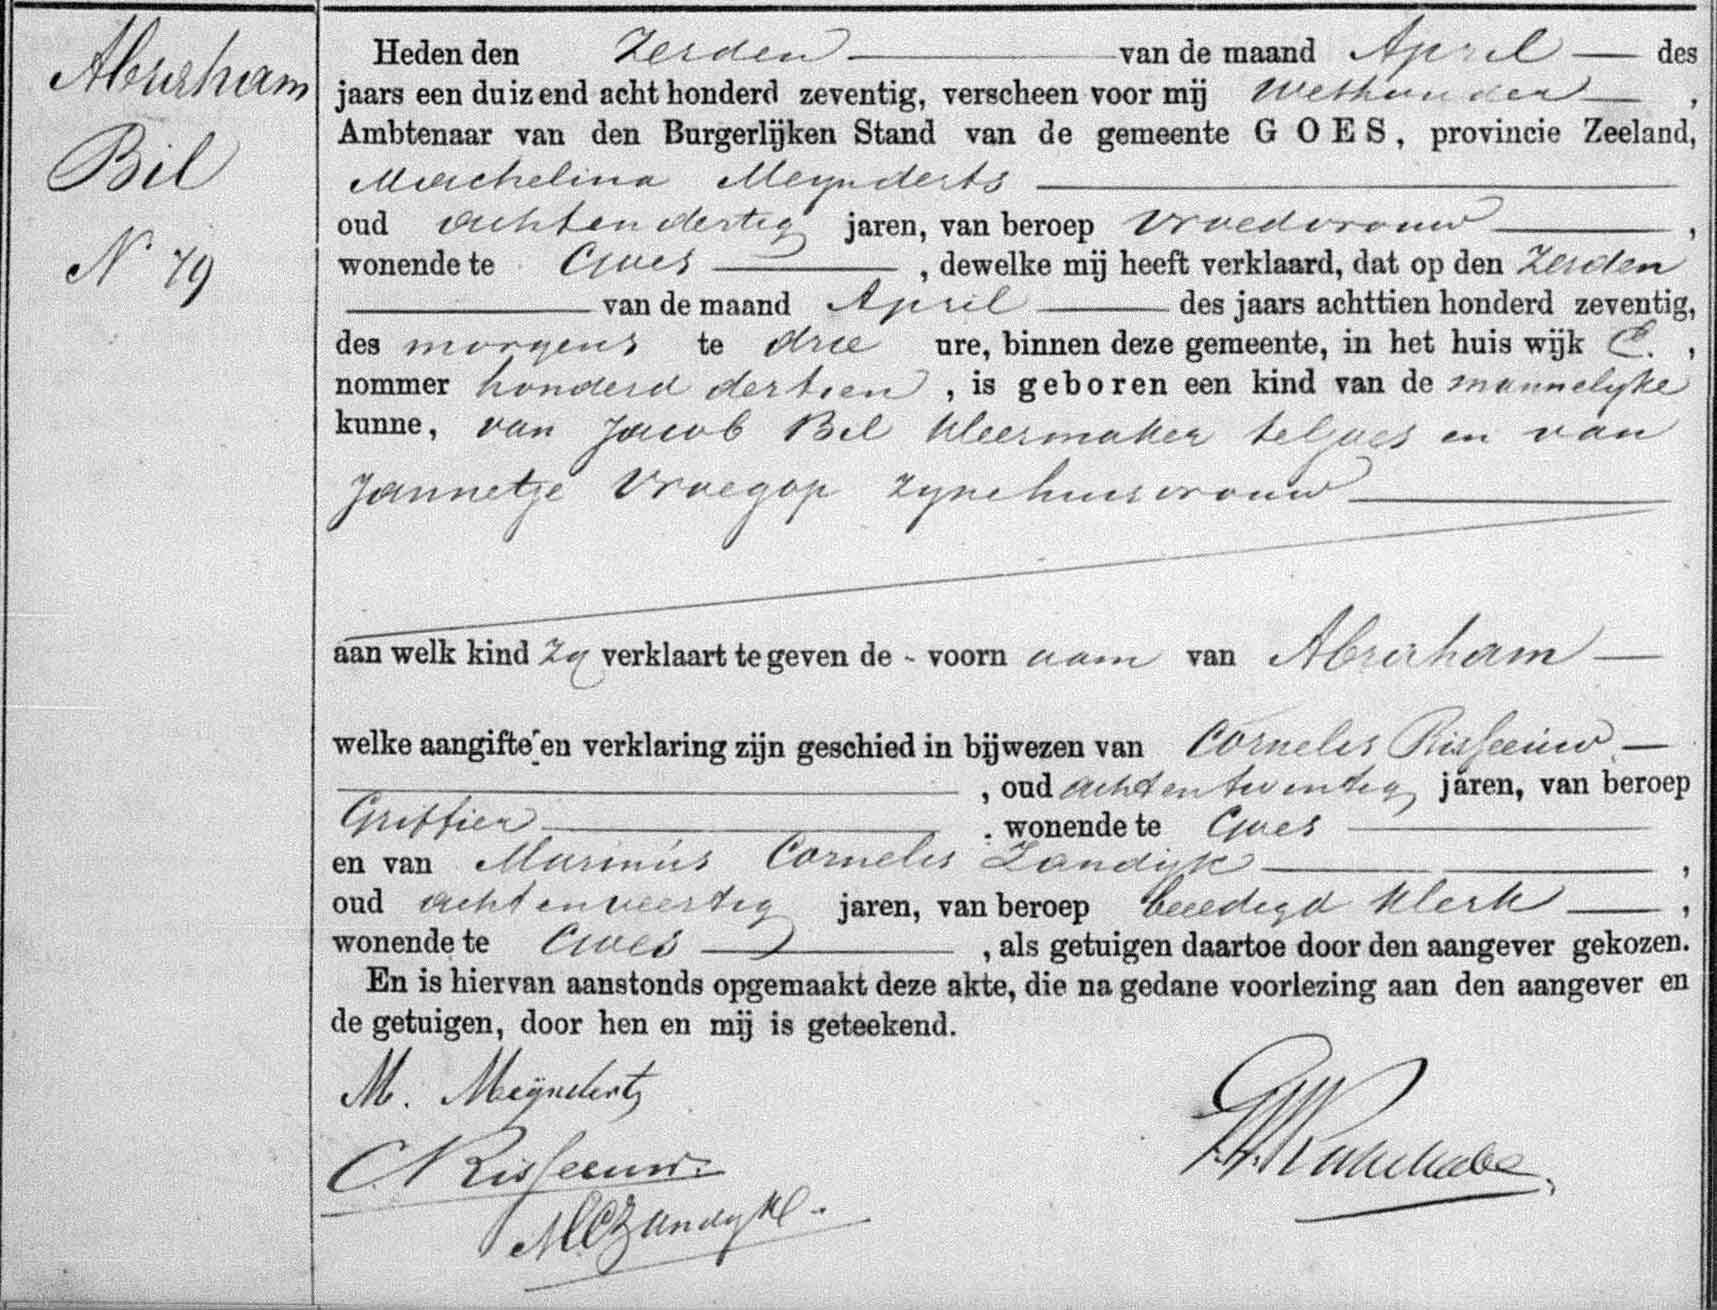 Abraham
Bil
N 79
Heden den Zesden van de maand April des
jaars een duizend acht honderd zeventig, verscheen voor mij Wethouder,
Ambtenaar van den Burgerlijken Stand van de gemeente GOES, provincie Zeeland,
Machelina Meynderts
oud achtendertig jaren, van beroep vroedvrouw,
wonende te Goes, dewelke mij heeft verklaard, dat op den Zesden
van de maand April des jaars achttien honderd zeventig,
des morgens te drie ure, binnen deze gemeente, in het huis wijk C.,
nommer honderd dertien, is geboren een kind van de mannelyke
kunne, van Jacob Bil kleermaker te Goes en van
Jannetje Vroegop zyne huisvrouw
aan welk kind zy verklaart te geven de - voorn aam van Abraham
welke aangifte en verklaring zijn geschied in bijwezen van Cornelis Risseeuw
, oud achtentwintig jaren, van beroep
Griffier. wonende te Goes
en van Marinus Cornelis Zandijk,
oud achtenveertig jaren, van beroep beeedigd klerk,
wonende te Goes, als getuigen daartoe door den aangever gekozen.
En is hiervan aanstonds opgemaakt deze akte, die na gedane voorlezing aan den aangever en
de getuigen, door hen en mij is geteekend.
M. Meÿnderts
C Risseeuw.
MCZandyk.